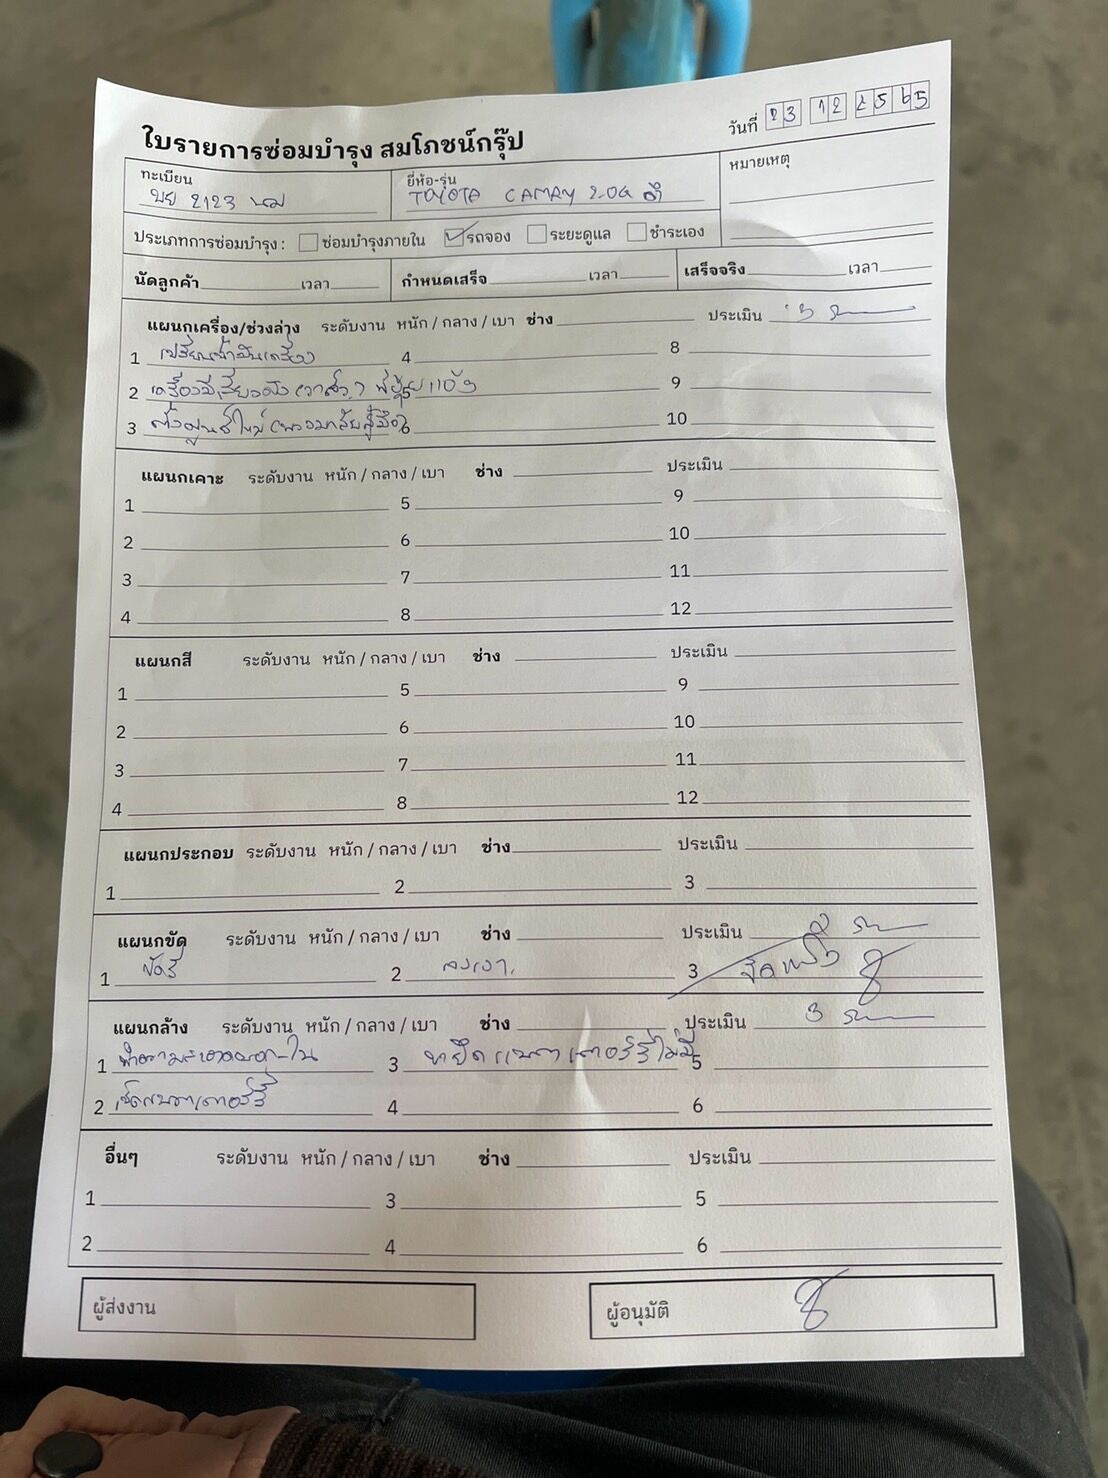 ใบรายการซ่อมบำรุง สมโภชน์กรุ๊ป
วันที่ 23 12 2565
ทะเบียน
2123 นม
ยี่ห้อ-รุ่น
TOYOTA CAMRY 2.0G ดำ
หมายเหตุ
ประเภทการซ่อมบำรุง : ซ่อมบำรุงภายใน รถจอง ระยะดูแล ชำระเอง
นัดลูกค้า เวลา กำหนดเสร็จ เวลา เสร็จจริง เวลา
แผนกเครื่อง/ช่วงล่าง ระดับงาน หนัก / กลาง / เบา ช่าง ประเมิน 3
1 เปลี่ยนน้ำมันเครื่อง 4 8
2 เครื่องมีเสียงดัง (วาล์ว) 5 9
3 ตั้งศูนย์ใหม่ (พวงมาลัย 6 10
แผนกเคาะ ระดับงาน หนัก / กลาง / เบา ช่าง ประเมิน
1 5 9
2 6 10
3 7 11
4 8 12
แผนกสี ระดับงาน หนัก / กลาง / เบา ช่าง ประเมิน
1 5 9
2 6 10
3 7 11
4 8 12
แผนกประกอบ ระดับงาน หนัก / กลาง / เบา ช่าง ประเมิน
1 2 3
แผนกขัด ระดับงาน หนัก / กลาง / เบา ช่าง ประเมิน
1 ขัดสี 2 ลงเงา 3
แผนกล้าง ระดับงาน หนัก / กลาง / เบา ช่าง ประเมิน 3
1 ทำความสะอาดนอก-ใน 3 ขายึดแบตเตอร์รี่ไม่มี 5
2 เช็คแบตเตอร์รี่ 4 6
อื่นๆ ระดับงาน หนัก / กลาง / เบา ช่าง ประเมิน
1 3 5
2 4 6
ผู้ส่งงาน
ผู้อนุมัติ